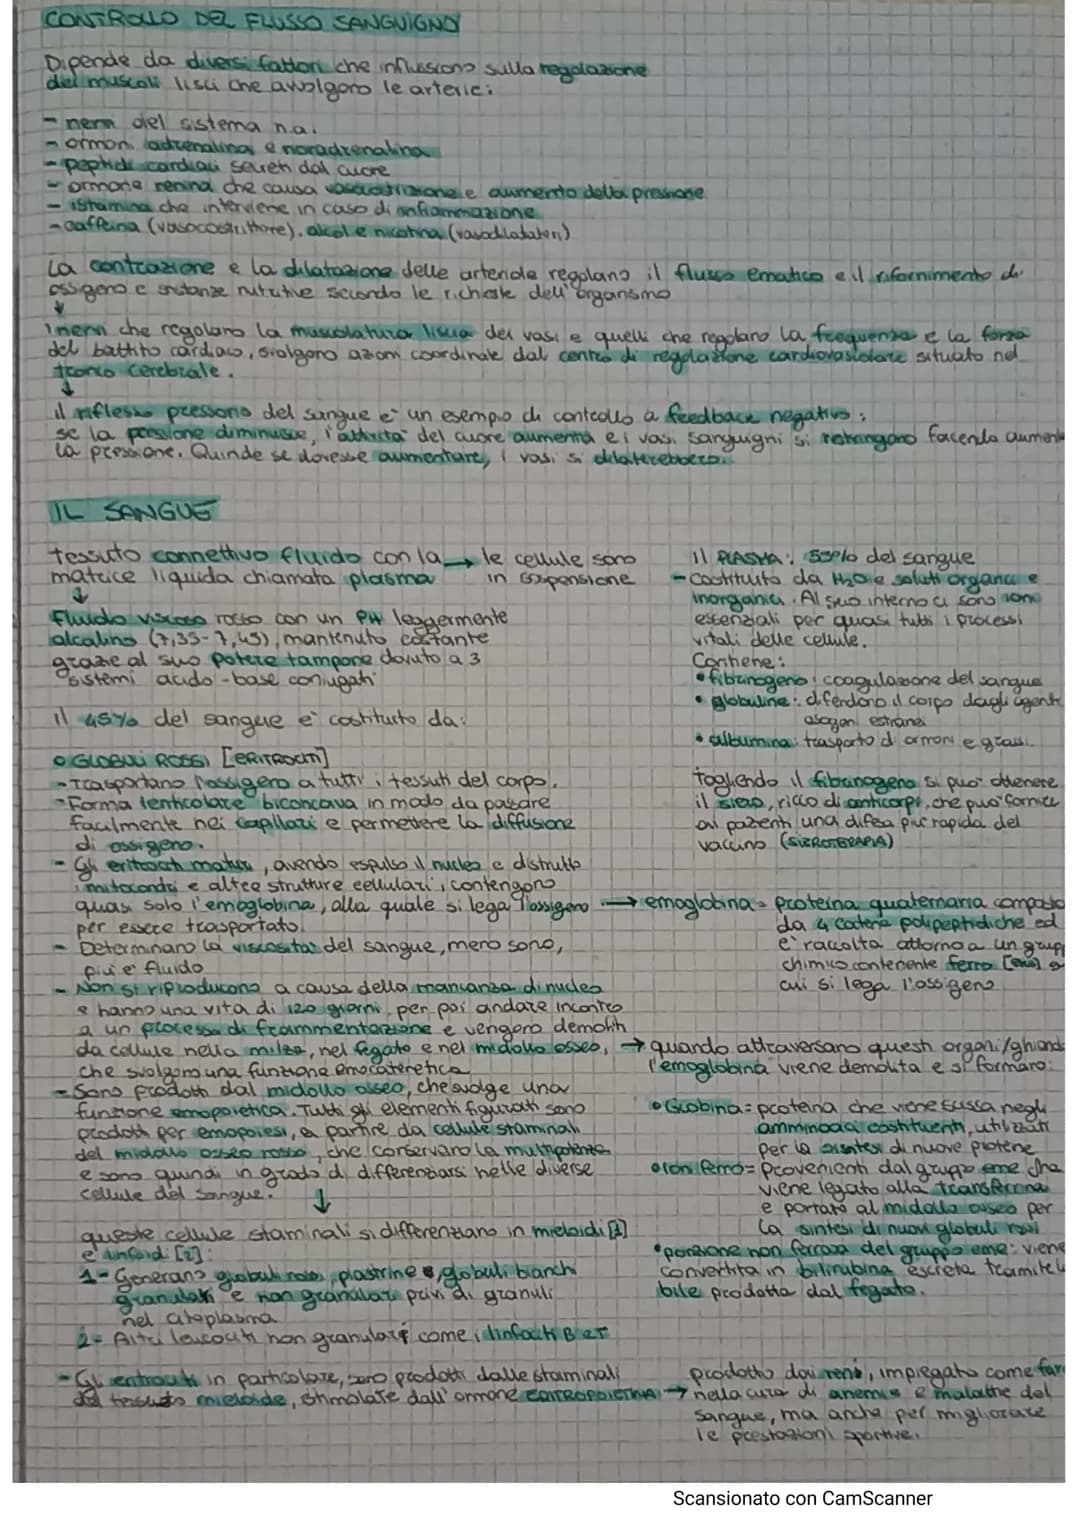 CONTROLLO DEL FLUSSO SANGUIGNO
Dipende da diversi fattori che influiscono sulla regolazione
dei muscoli lisci che avvolgono le arterie:
- nervi del sistema n.a.
- ormoni adrenalina e noradrenalina
- peptidi cardiaci secreti dal cuore
- ormone renina che causa vasocostrizione e aumento della pressione
- istamina che interviene in caso di infiammazione
- caffeina (vasocostrittore), alcol e nicotina (vasodilatatori)
La contrazione e la dilatazione delle arteriole regolano il flusso ematico e il rifornimento di
ossigeno e sostanze nutritive secondo le richieste dell'organismo
↓
I nervi che regolano la muscolatura liscia dei vasi e quelli che regolano la frequenza e la forza
del battito cardiaco, svolgono azioni coordinate dal centro di regolazione cardiovascolare situato nel
tronco cerebrale.
↓
il riflesso pressorio del sangue è un esempio di controllo a feedback negativo:
se la pressione diminuisce, l'attività del cuore aumenta e i vasi sanguigni si restringono facendo aumenta
la pressione. Quinde se dovesse aumentare, i vasi si dilaterebbero.
IL SANGUE
tessuto connettivo fluido con la → le cellule sono
matrice liquida chiamata plasma in sospensione
↓
Fluido viscoso rosso con un PH leggermente
alcalino (7,35-7,45), mantenuto costante
grazie al suo potere tampone dovuto a 3
sistemi acido-base coniugati
il 45% del sangue è costituito da:
o GLOBULI ROSSI [ERITROCITI]
- Trasportano l'ossigeno a tutti i tessuti del corpo.
- Forma lenticolare biconcava in modo da passare
facilmente nei capillari e permettere la diffusione
di ossigeno.
- Gli eritrociti maturi, avendo espulso il nucleo e distrutto
i mitocondri e altre strutture cellulari, contengono
quasi solo l'emoglobina, alla quale si lega l'ossigeno →
per essere trasportato.
- Determinano la viscosità del sangue, meno sono,
più è fluido
- Non si riproducono a causa della mancanza di nucleo
e hanno una vita di 120 giorni, per poi andare incontro
a un processo di frammentazione e vengono demoliti
da cellule nella milza, nel fegato e nel midollo osseo, →
che svolgono una funzione emocateretica
- Sono prodotti dal midollo osseo, che svolge una
funzione emopoietica. Tutti gli elementi figurati sono
prodotti per emopoiesi, a partire da cellule staminali
del midollo osseo rosso, che conservano la multipotenza
e sono quindi in grado di differenziarsi nelle diverse
cellule del sangue.
↓
queste cellule staminali si differenziano in mieloidi [1]
e linfoidi [2]:
1- Generano globuli rossi, piastrine e globuli bianchi
granulari e non granulari privi di granuli
nel citoplasma
2- Altri leucociti non granulari come i linfociti B e T
- Gli eritrociti in particolare, sono prodotti dalle staminali
del tessuto mieloide, stimolate dall'ormone ERITROPOIETINA →
il PLASMA: 55% del sangue
- Costituito da H2O e soluti organici e
inorganici. Al suo interno ci sono ioni
essenziali per quasi tutti i processi
vitali delle cellule.
Contiene:
• fibrinogeno: coagulazione del sangue
• globuline: difendono il corpo dagli agenti
estranei
• albumina: trasporto di ormoni e grassi.
togliendo il fibrinogeno si può ottenere
il siero, ricco di anticorpi, che può fornire
ai pazienti una difesa più rapida del
vaccino (SIEROTERAPIA)
emoglobina = proteina quaternaria composta
da 4 catene polipeptidiche ed
è raccolta attorno a un grupp
chimico contenente ferro [eme] a
cui si lega l'ossigeno
quando attraversano questi organi/ghiando
l'emoglobina viene demolita e si formano:
• Globina = proteina che viene scissa negli
amminoacidi costituenti, utilizzati
per la sintesi di nuove proteine
• Ioni ferro = provenienti dal gruppo eme che
viene legato alla transferrina
e portato al midollo osseo per
la sintesi di nuovi globuli rossi
• porzione non ferrosa del gruppo eme: viene
convertita in bilirubina escreta tramite l
bile prodotta dal fegato.
prodotto dai reni, impiegato come far
nella cura di anemie e malattie del
sangue, ma anche per migliorare
le prestazioni sportive.
Scansionato con CamScanner